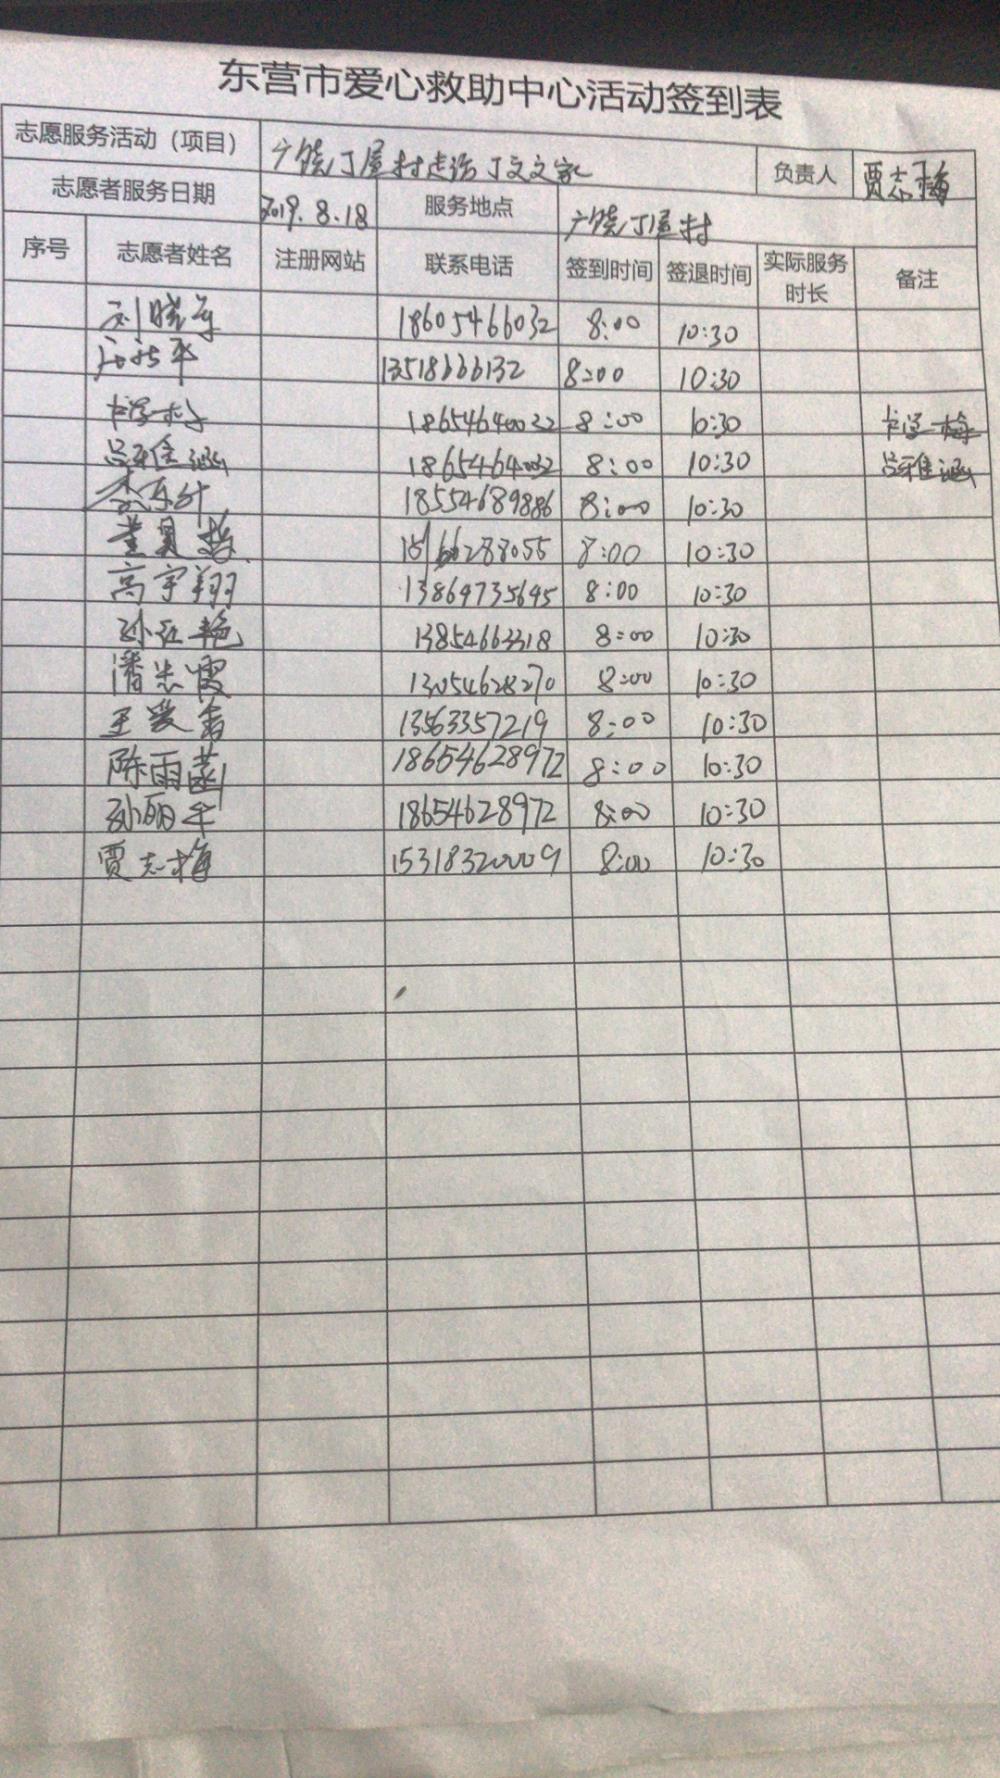 东营市爱心救助中心活动签到表
志愿服务活动（项目） 广饶丁屋村走访丁文文家 负责人 贾志梅
志愿者服务日期 2019.8.18 服务地点 广饶丁屋村
序号 志愿者姓名 注册网站 联系电话 签到时间 签退时间 实际服务时长 备注
18605466032 8:00 10:30
13518666132 8:00 10:30
18654640032 8:00 10:30
18654640032 8:00 10:30
18554689886 8:00 10:30
8:00 10:30
高宇翔 13869735695 8:00 10:30
孙红艳 13854663318 8:00 10:30
13054628270 8:00 10:30
13563357219 8:00 10:30
陈雨菡 18654628972 8:00 10:30
孙丽华 18654628972 8:00 10:30
贾志梅 15318320009 8:00 10:30